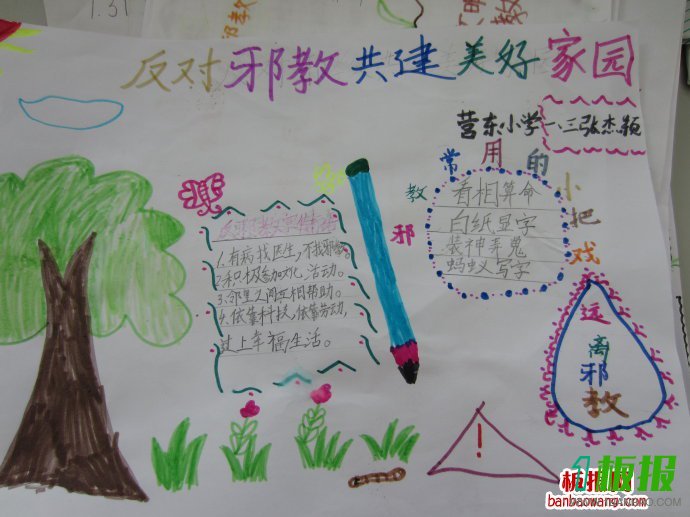 1.31
邪教
反对邪教共建美好家园
营东小学一、三张杰颖
邪教常用的小把戏
看相算命
白纸显字
装神弄鬼
蚂蚁写字
1.有病找医生,不找邪教。
2.积极参加文化活动。
3.邻里之间互相帮助。
4.依靠科技,依靠劳动,
过上幸福生活。
远离邪教
!
板报网
banbaowang.com
板报